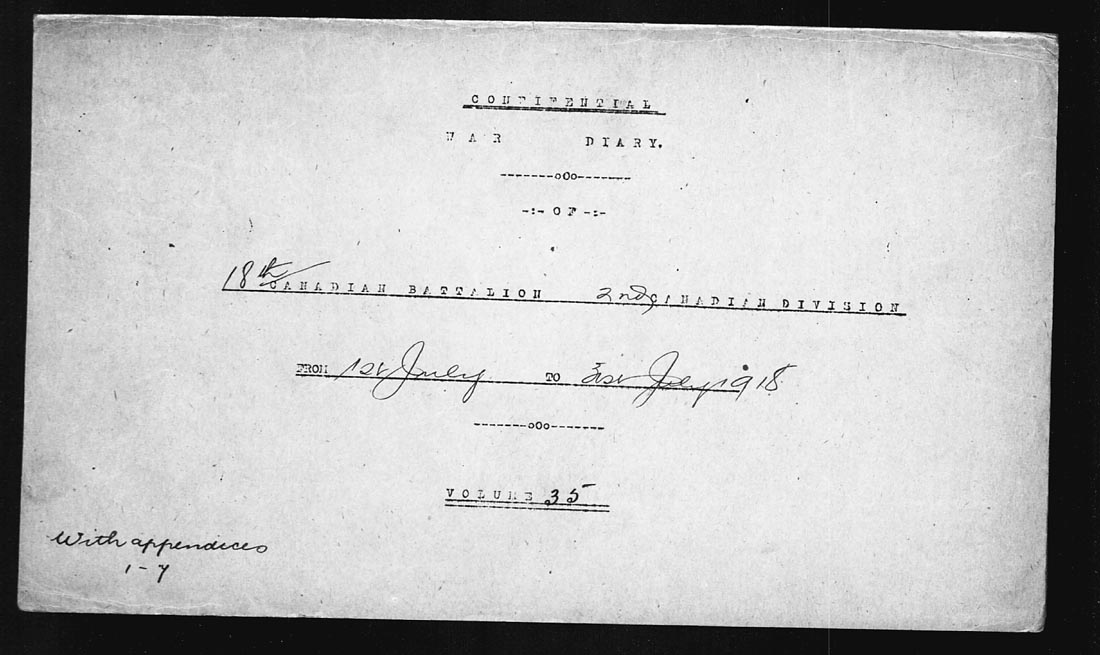 CONFIDENTIAL
WAR DIARY.
-------oOo-------
-:- OF -:-
18th CANADIAN BATTALION 2nd, CANADIAN DIVISION
FROM 1st July TO 31st July 1918
-------oOo-------
VOLUME 35
With appendices
1-7